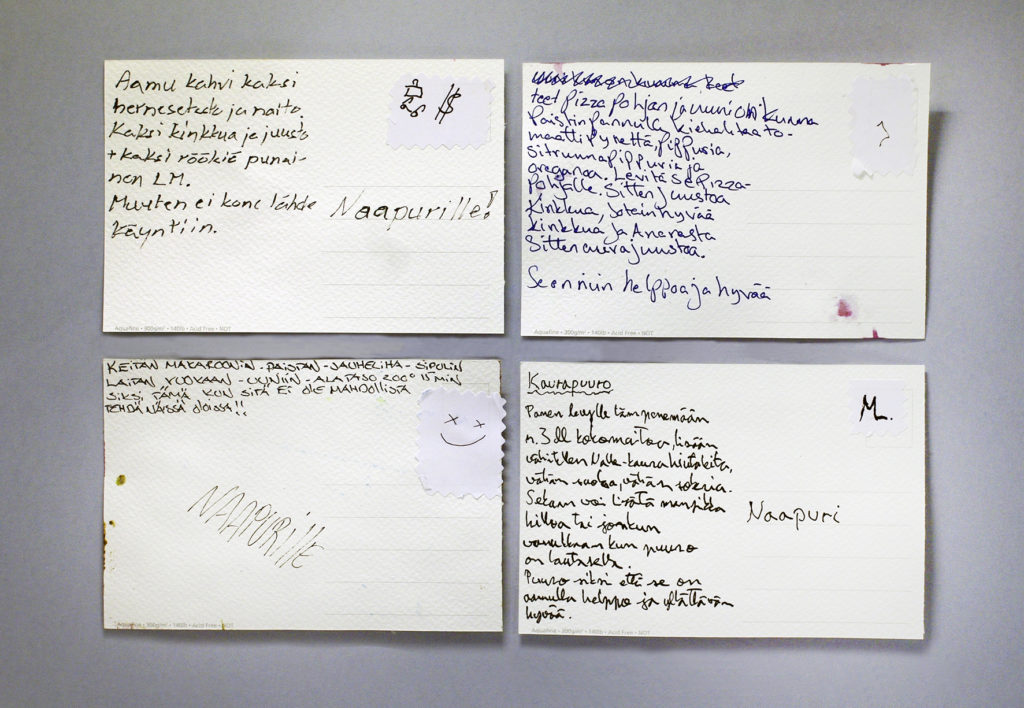 Aamu kahvi kaksi
hernesetada ja maito.
Kaksi kinkkua ja juusto
+ kaksi röökiä punai-
nen LM.
Muuten ei kone lähde
käyntiin.
Naapurille!
$
teet pizza pohjan ja uuni on kuuma
Paistinpannulla, kiehalitaato-
maattipyrettä, pippuria,
sitruunapippuria ja
oreganoa. Levitä se pizza-
pohjalle. Sitten juustoa
Kinkkua, Jotain hyvää
kinkkua ja Ananasta
Sitten aurajuustoa.
Se on niin helppoa ja hyvää
Aquafine • 300g/m² • 140lb • Acid Free • NOT
Aquafine • 300g/m² • 140lb • Acid Free • NOT
KEITÄN MAKAROONIN - PAISTAN - JAUHELIHA - SIPULIN
LAITAN VUOKAAN - UUNIIN - ALATASO 200° 15 MIN
SIKSI TÄMÄ KUN SITÄ EI OLE MAHDOLLISTA
TEHDÄ NÄISSÄ OLOISSA!!
NAAPURILLE
Kaurapuuro
Panen levylle lämpenemään
n. 3 dl kokomaitoa, lisään
vähitellen Nalle-kaurahiutaleita,
vähän suolaa, vähän sokeria.
Sekaan voi lisätä mansikka
hilloa tai jonkun
vanukkaan kun puuro
on lautasella.
Puuro siksi että se on
aamulla helppo ja yllättävän
hyvää.
ML.
Naapuri
Aquafine • 300g/m² • 140lb • Acid Free • NOT
Aquafine • 300g/m² • 140lb • Acid Free • NOT